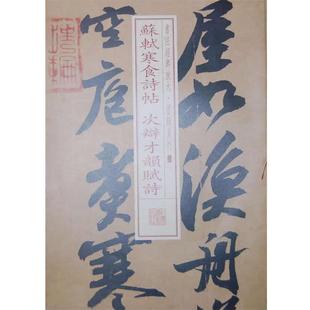 屋如漁舟
蘇軾寒食詩帖 次辯才韻賦詩
空庖煮寒